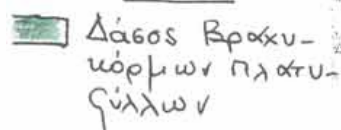 Δάσος Βραχυ-
κόρμων πλατυ-
φύλλων